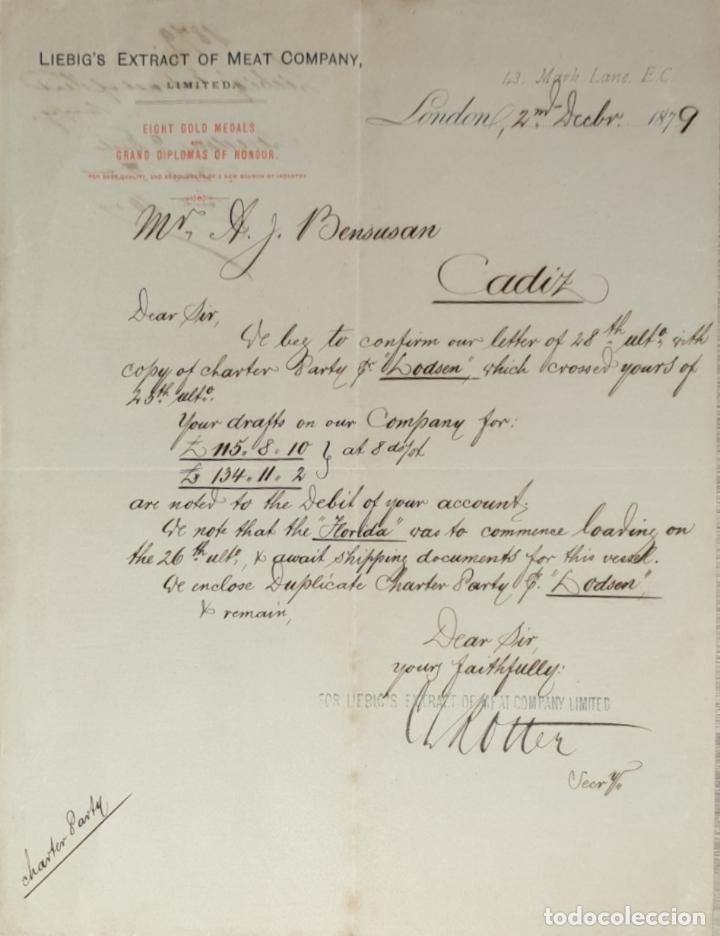 LIEBIG'S EXTRACT OF MEAT COMPANY,
LIMITED.
EIGHT GOLD MEDALS
AND
GRAND DIPLOMAS OF HONOUR.
FOR BEST QUALITY, AND AS FOUNDERS OF A NEW BRANCH OF INDUSTRY
43, Mark Lane, E.C.
London, 2nd Decbr. 1879
Mr. A. J. Bensusan
Cadiz
Dear Sir,
We beg to confirm our letter of 28th ulto. with
copy of charter Party pr. "Lodsen", which crossed yours of
25th ulto.
Your drafts on our Company for:
£ 115.8.10 } at 8 ds/st
£ 134.11.2
are noted to the Debit of your account;
We note that the "Florida" was to commence loading on
the 26th ulto., & await shipping documents for this vessel.
We enclose Duplicate Charter Party pr. "Lodsen",
& remain,
Dear Sir,
yours faithfully:
FOR LIEBIG'S EXTRACT OF MEAT COMPANY LIMITED
Secry.
Charter Party
todocoleccion